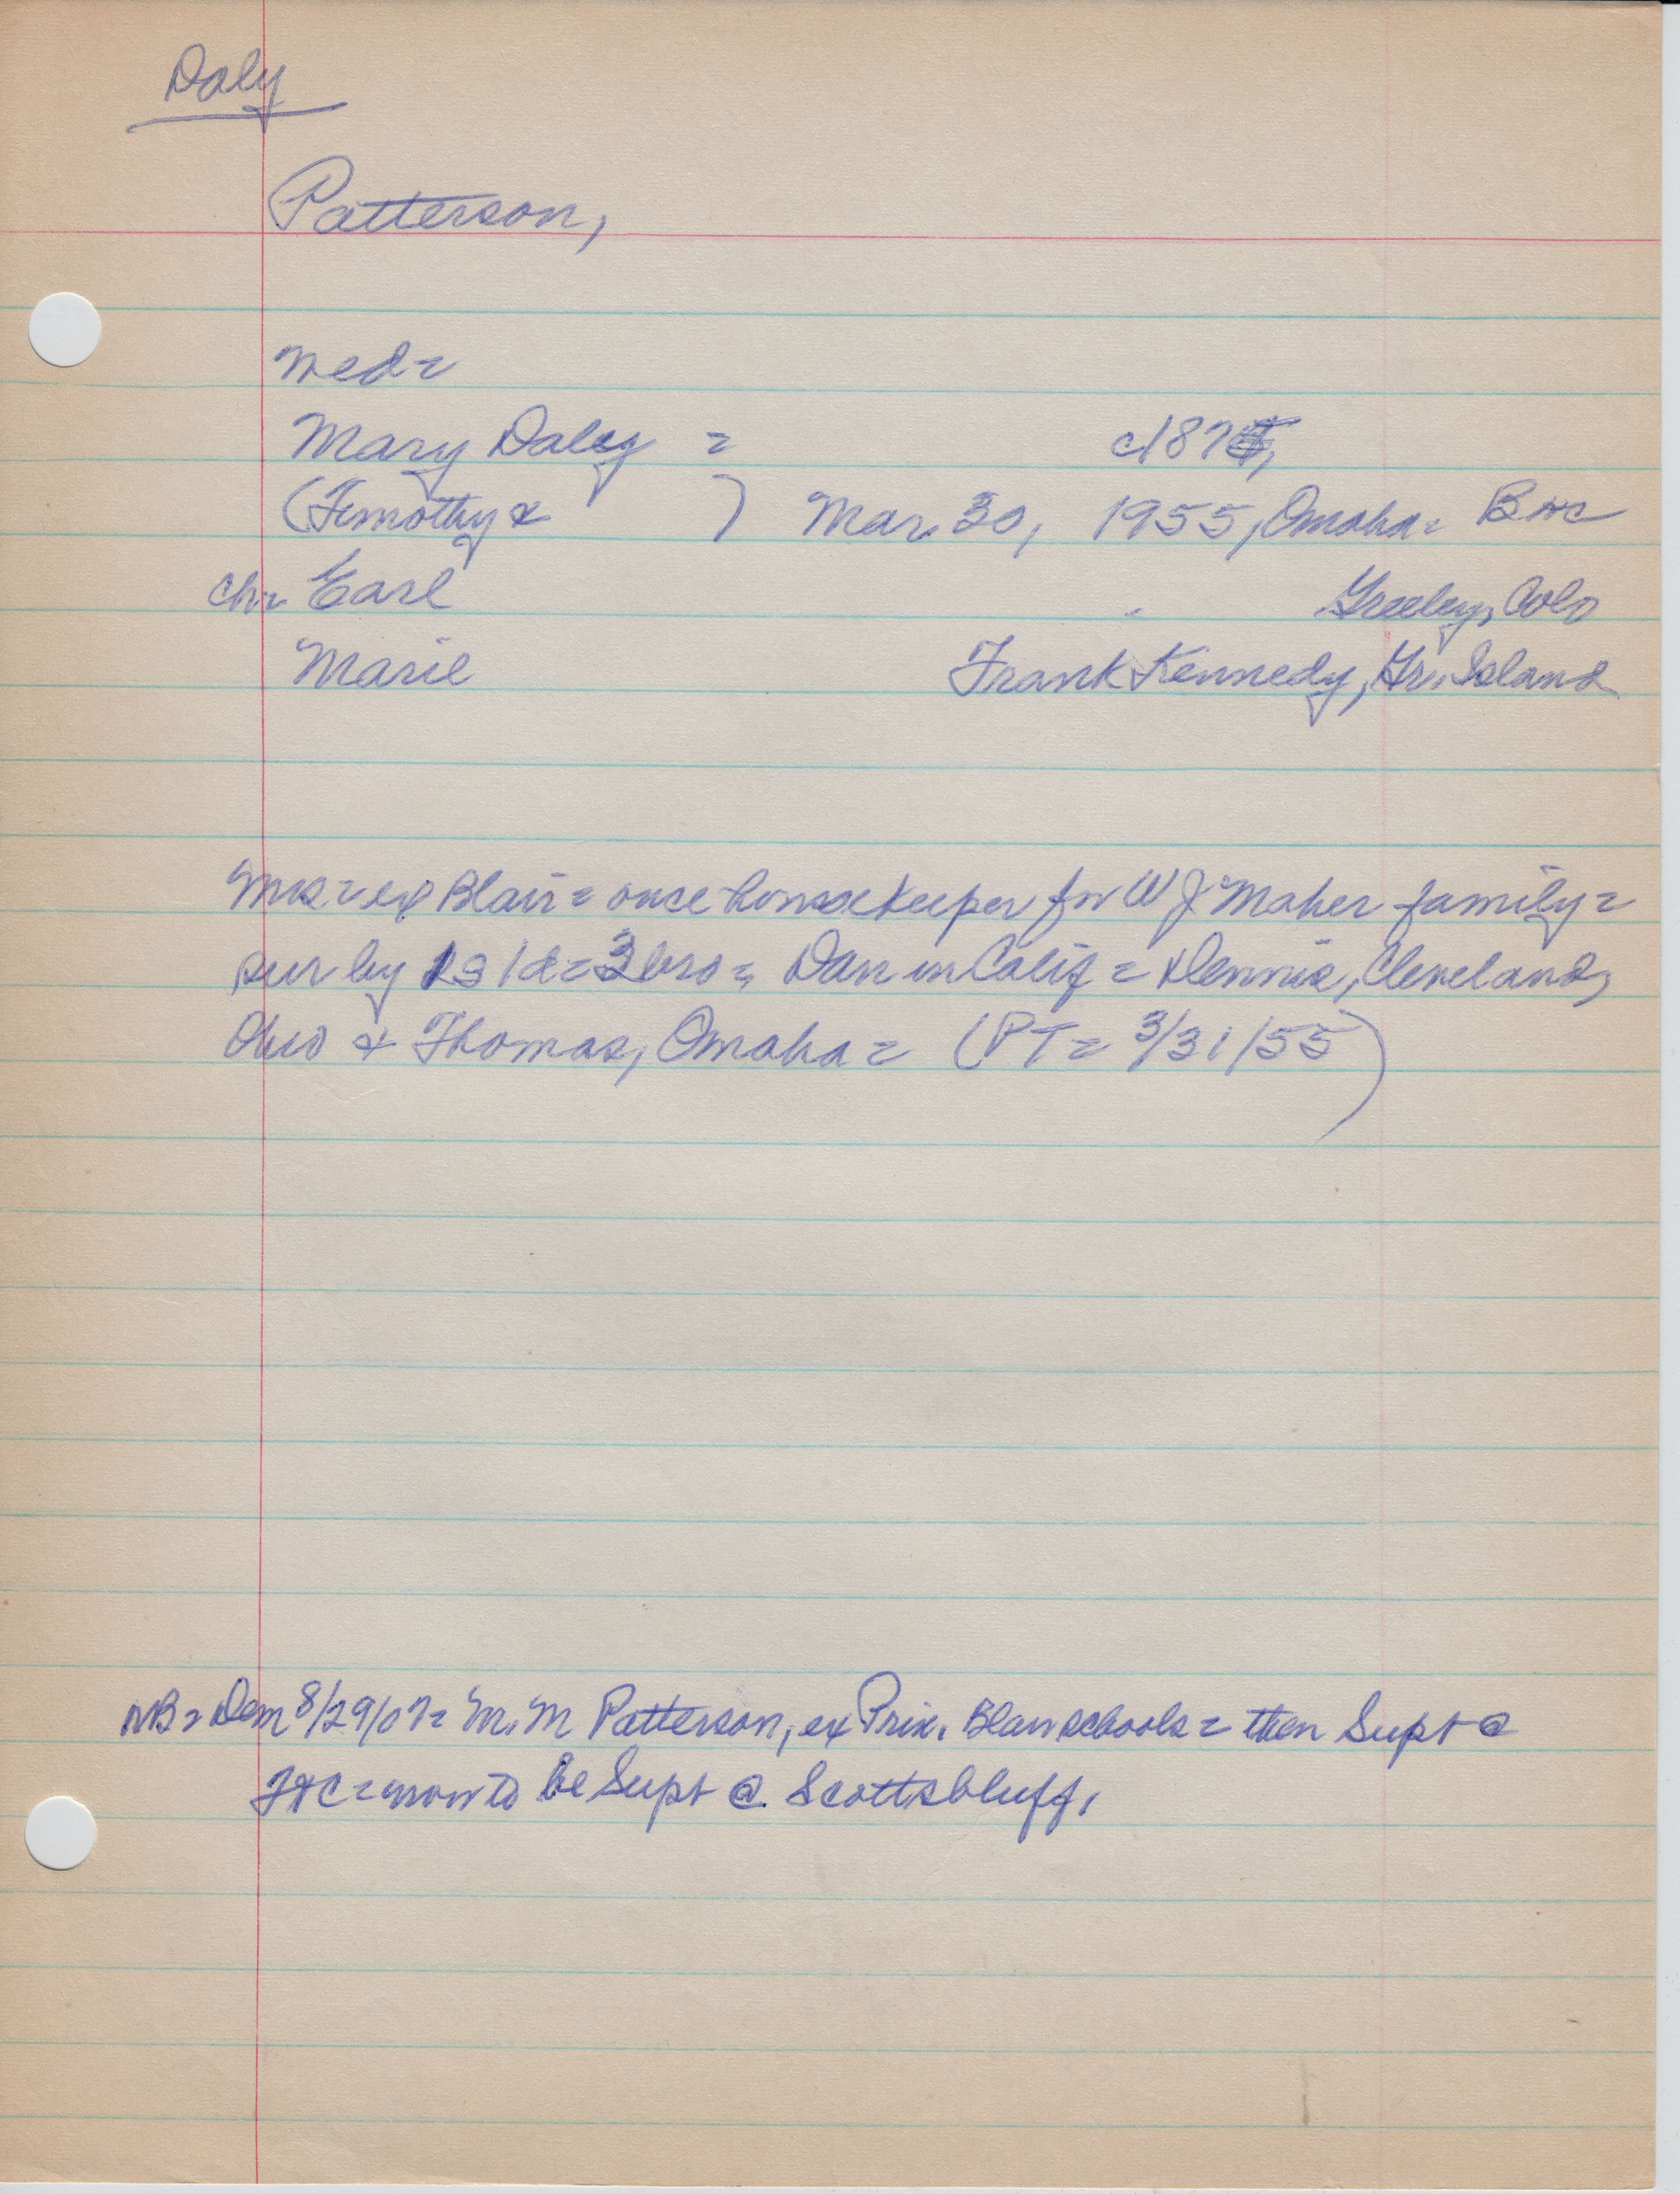 Daly
Patterson,
wed =
Mary Daley = c1875,
(Timothy & ) Mar. 30, 1955, Omaha =
ch = Earl Greeley, Colo
Marie Frank Kennedy, Gr. Island
Mrs = ex Blair = once housekeeper for W J Maher family =
sur by 1s 1d = 3 bro = Dan in Calif = Dennis, Cleveland,
Ohio & Thomas, Omaha = (PT = 3/31/55)
NB = Dem 8/29/07 = M. M Patterson, ex Prin. Blair schools = then Supt @
= now to be Supt @ Scottsbluff,